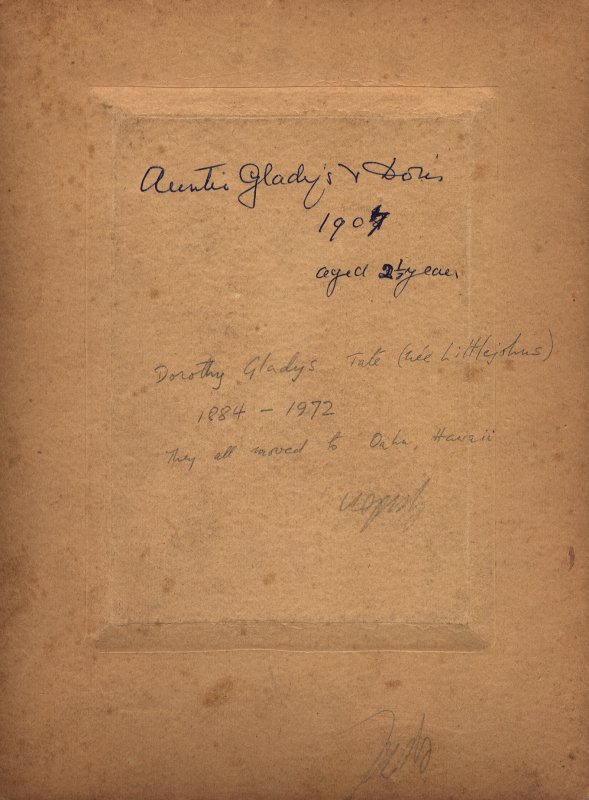 Auntie Gladys & Doris
1907
aged 2½ years
Dorothy Gladys Tate (née Littlejohns)
1884 - 1972
They all moved to Oahu, Hawaii